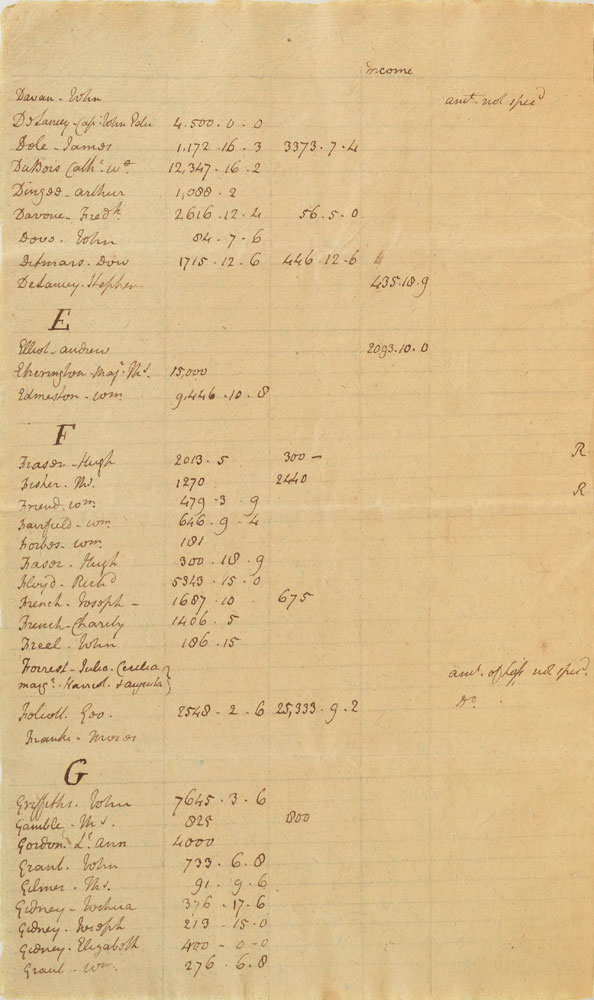 Income
Davan - John amt. not specd
DeLancey - Capt. John Peter 4.500 . 0 . 0
Dole - James 1.172 . 16 . 3 3373 . 7 . 4
DuBois Cathe. wd. 12,347 . 16 . 2
Dingee - Arthur 1,088 . 2
Davoue - Fredk. 2616 . 12 . 4 56 . 5 . 0
Dows - John 84 . 7 . 6
Ditmars - Dow 1715 . 12 . 6 446 12 . 6
DeLancey - Stephen 435 . 18 . 9
E
Elliot - Andrew 2093 . 10 . 0
Etherington - Majr. Ths. 15,000
Edmeston - Wm. 9,446 . 10 . 8
F
Fraser - Hugh 2013 . 5 300 — R
Fisher - Ths. 1270 2440
Friend, Wm. 479 . 3 . 9 R
Fairfield - Wm. 646 . 9 . 4
Forbes - Wm. 181
Fraser - Hugh 300 . 18 . 9
Floyd - Richd 5343 . 15 . 0
French - Joseph - 1687 . 10 675
French - Charity 1406 . 5
Freel - John 186 . 15
Forrest - Julia. Cecilia
margt. Harriot & augusta} amt. of Loss not specd.
Folwell. Geo. 2548 . 2 . 6 25,333 . 9 . 2 Do.
Franks - Moses
G
Griffiths. John 7645 . 3 . 6
Gamble - Ths. 825 800
Gordon. Ly. Ann 4000
Grant. John 733 . 6 . 8
Gilmer - Ths. 91 . 9 . 6
Gidney - Joshua 376 . 17 . 6
Gidney - Joseph 213 - 15 . 0
Gidney - Elizabeth 400 - 0 - 0
Grant - Wm. 276 . 6 . 8